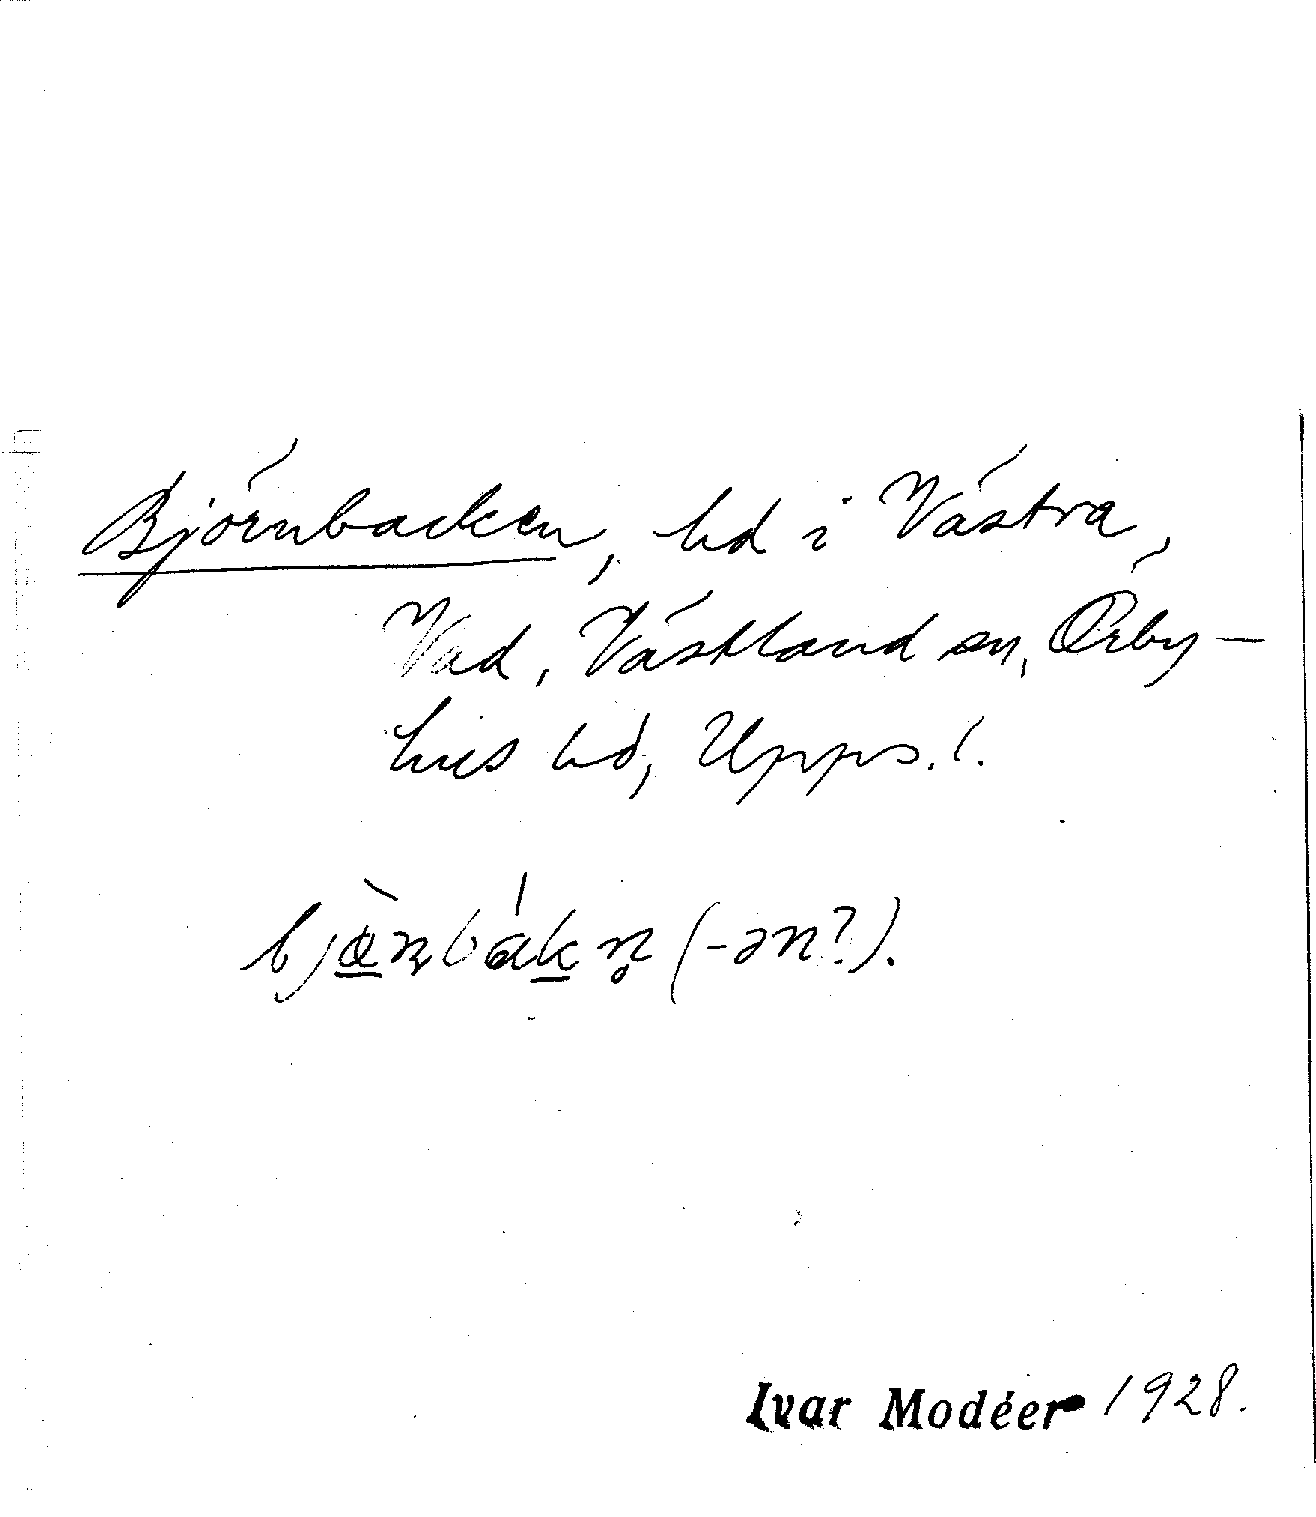 Björnbacken, hd i Västra,
Vad, Västland sn, Örby-
hus hd, Upps. l.
bjæ̀ɳbákn̥ (-ən?).
Ivar Modéer 1928.